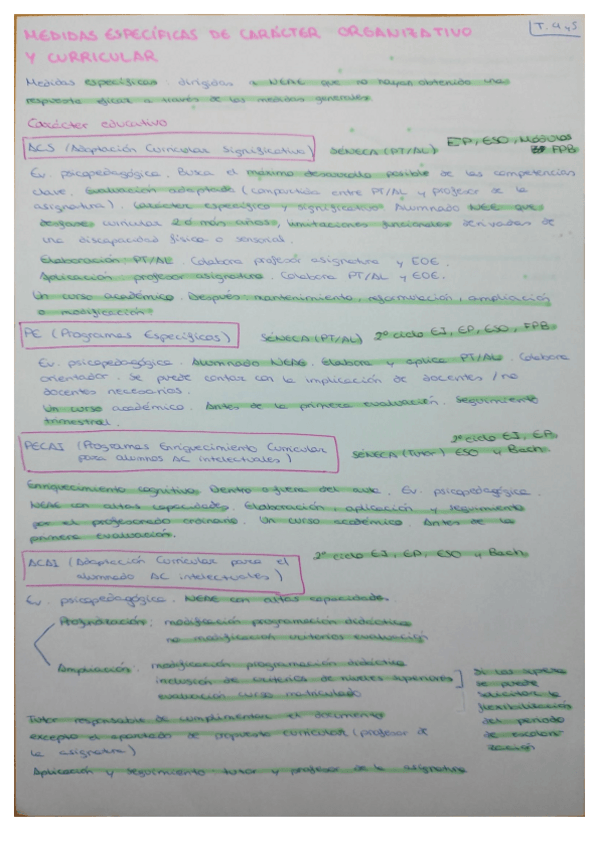 T. 4 y 5
MEDIDAS ESPECÍFICAS DE CARÁCTER ORGANIZATIVO
Y CURRICULAR
Medidas específicas: dirigidas a NEAE que no hayan obtenido una
respuesta eficaz a través de las medidas generales
Carácter educativo
ACS (Adaptación Curricular Significativa) SÉNECA (PT/AL) EP, ESO, MÓDULOS
FPB
Ev. psicopedagógica. Busca el máximo desarrollo posible de las competencias
clave. Evaluación adaptada (compartida entre PT/AL y profesor de la
asignatura). Carácter específico y significativo. Alumnado NEE que
desfase curricular 2 ó más años, limitaciones funcionales derivadas de
una discapacidad física o sensorial.
Elaboración PT/AL. Colabora profesor asignatura y EOE.
Aplicación profesor asignatura. Colabora PT/AL y EOE.
Un curso académico. Después: mantenimiento, reformulación, ampliación
o modificación.
PE (Programas Específicos) SÉNECA (PT/AL) 2º ciclo EI, EP, ESO, FPB.
Ev. psicopedagógica. Alumnado NEAE. Elabora y aplica PT/AL. Colabora
orientador. Se puede contar con la implicación de docentes / no
docentes necesarios.
Un curso académico. Antes de la primera evaluación. Seguimiento
trimestral.
PECAI (Programas Enriquecimiento Curricular
para alumnos AC intelectuales) SÉNECA (Tutor) 2º ciclo EI, EP,
ESO y Bach.
Enriquecimiento cognitivo. Dentro o fuera del aula. Ev. psicopedagógica.
NEAE con altas capacidades. Elaboración, aplicación y seguimiento
por el profesorado ordinario. Un curso académico. Antes de la
primera evaluación.
ACAI (Adaptación Curricular para el
alumnado AC intelectuales) 2º ciclo EI, EP, ESO y Bach
Ev. psicopedagógica. NEAE con altas capacidades.
Profundización: modificación programación didáctica
no modificación criterios evaluación
Ampliación: modificación programación didáctica
inclusión de criterios de niveles superiores
evaluación curso matriculado
Si los supera
se puede
solicitar la
flexibilización
del periodo
de escolari
zación
Tutor responsable de cumplimentar el documento
excepto el apartado de propuesta curricular (profesor de
la asignatura)
Aplicación y seguimiento: tutor y profesor de la asignatura